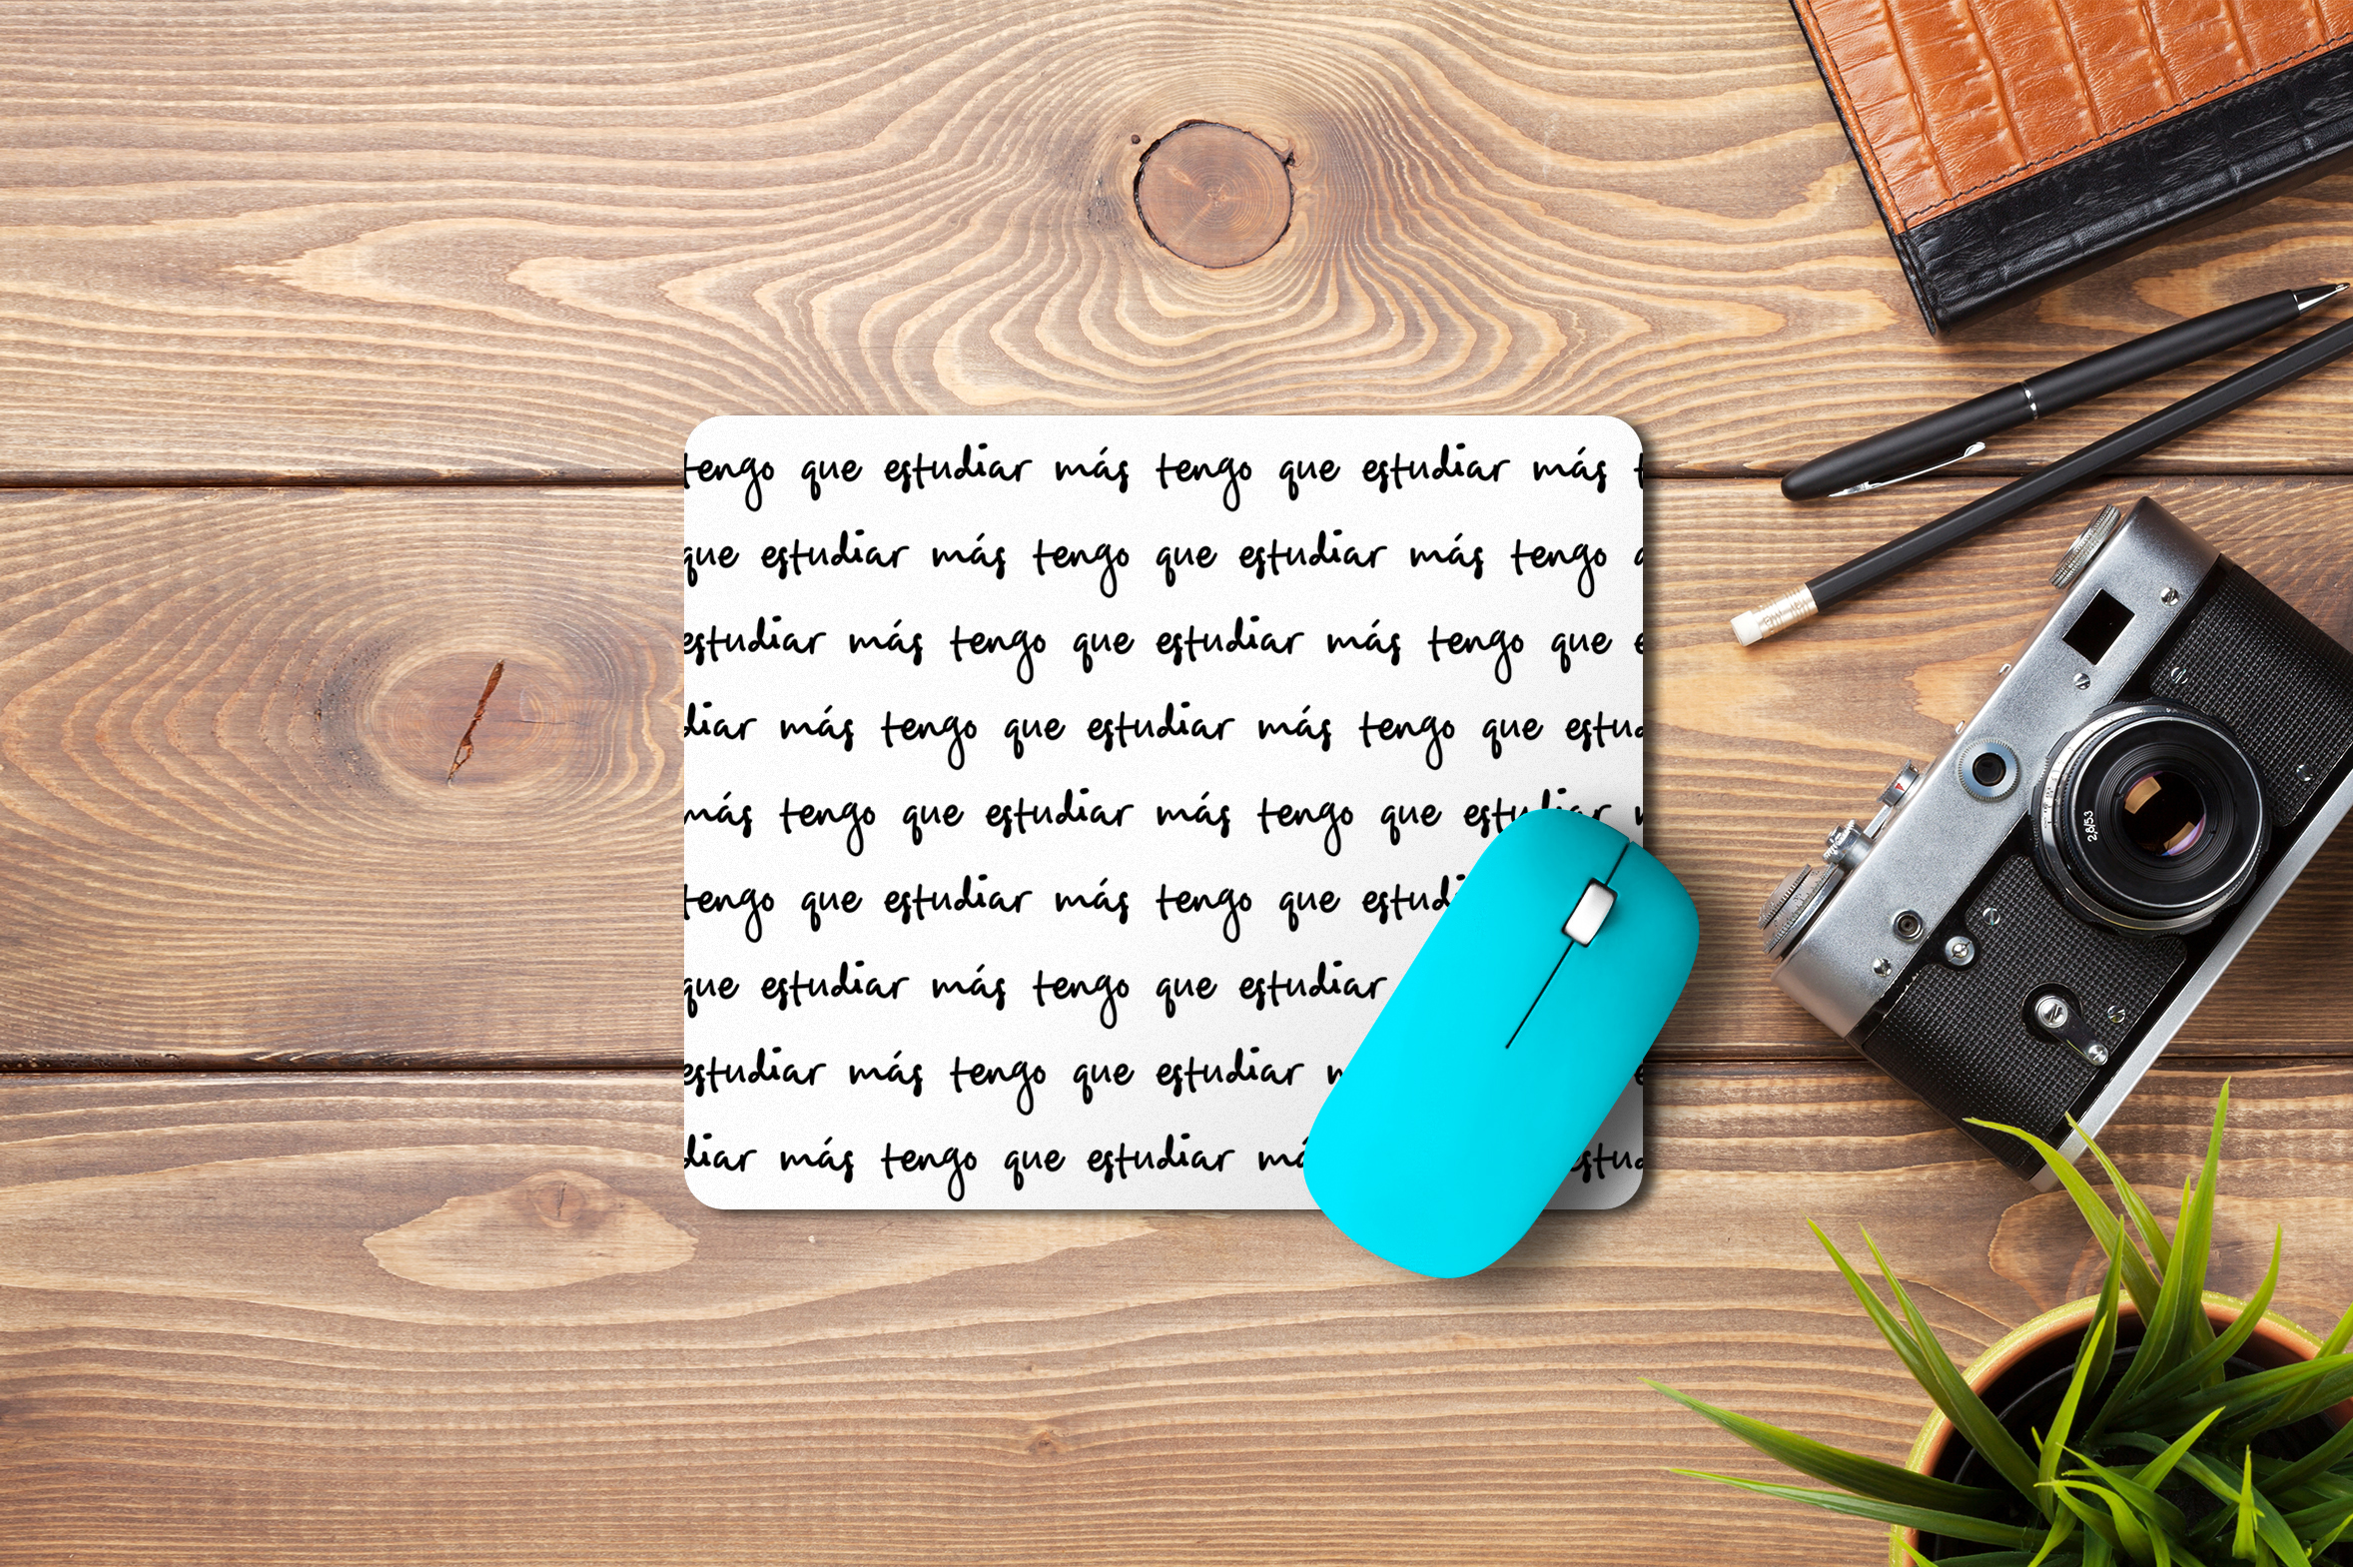 tengo que estudiar más tengo que estudiar más
que estudiar más tengo que estudiar más tengo
estudiar más tengo que estudiar más tengo que
diar más tengo que estudiar más tengo que estud
más tengo que estudiar más tengo que estudiar
tengo que estudiar más tengo que estudi
que estudiar más tengo que estudiar
estudiar más tengo que estudiar
diar más tengo que estudiar má estud
2.8/53